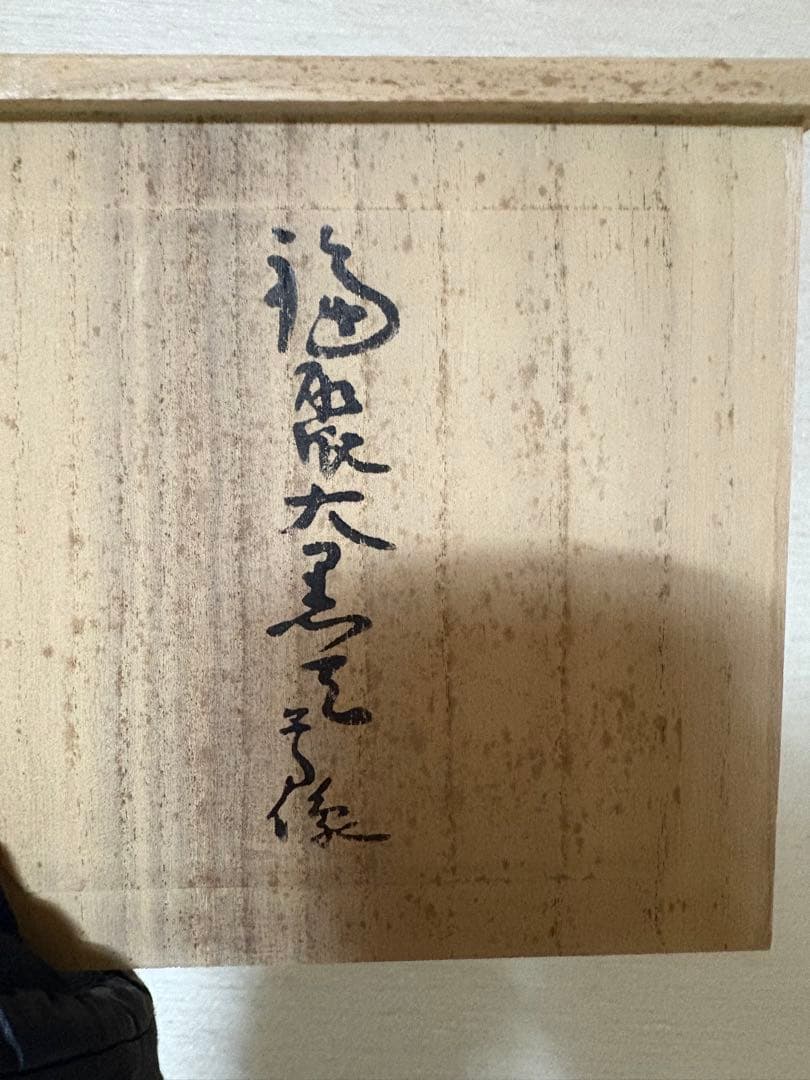 福聚大黒天尊像